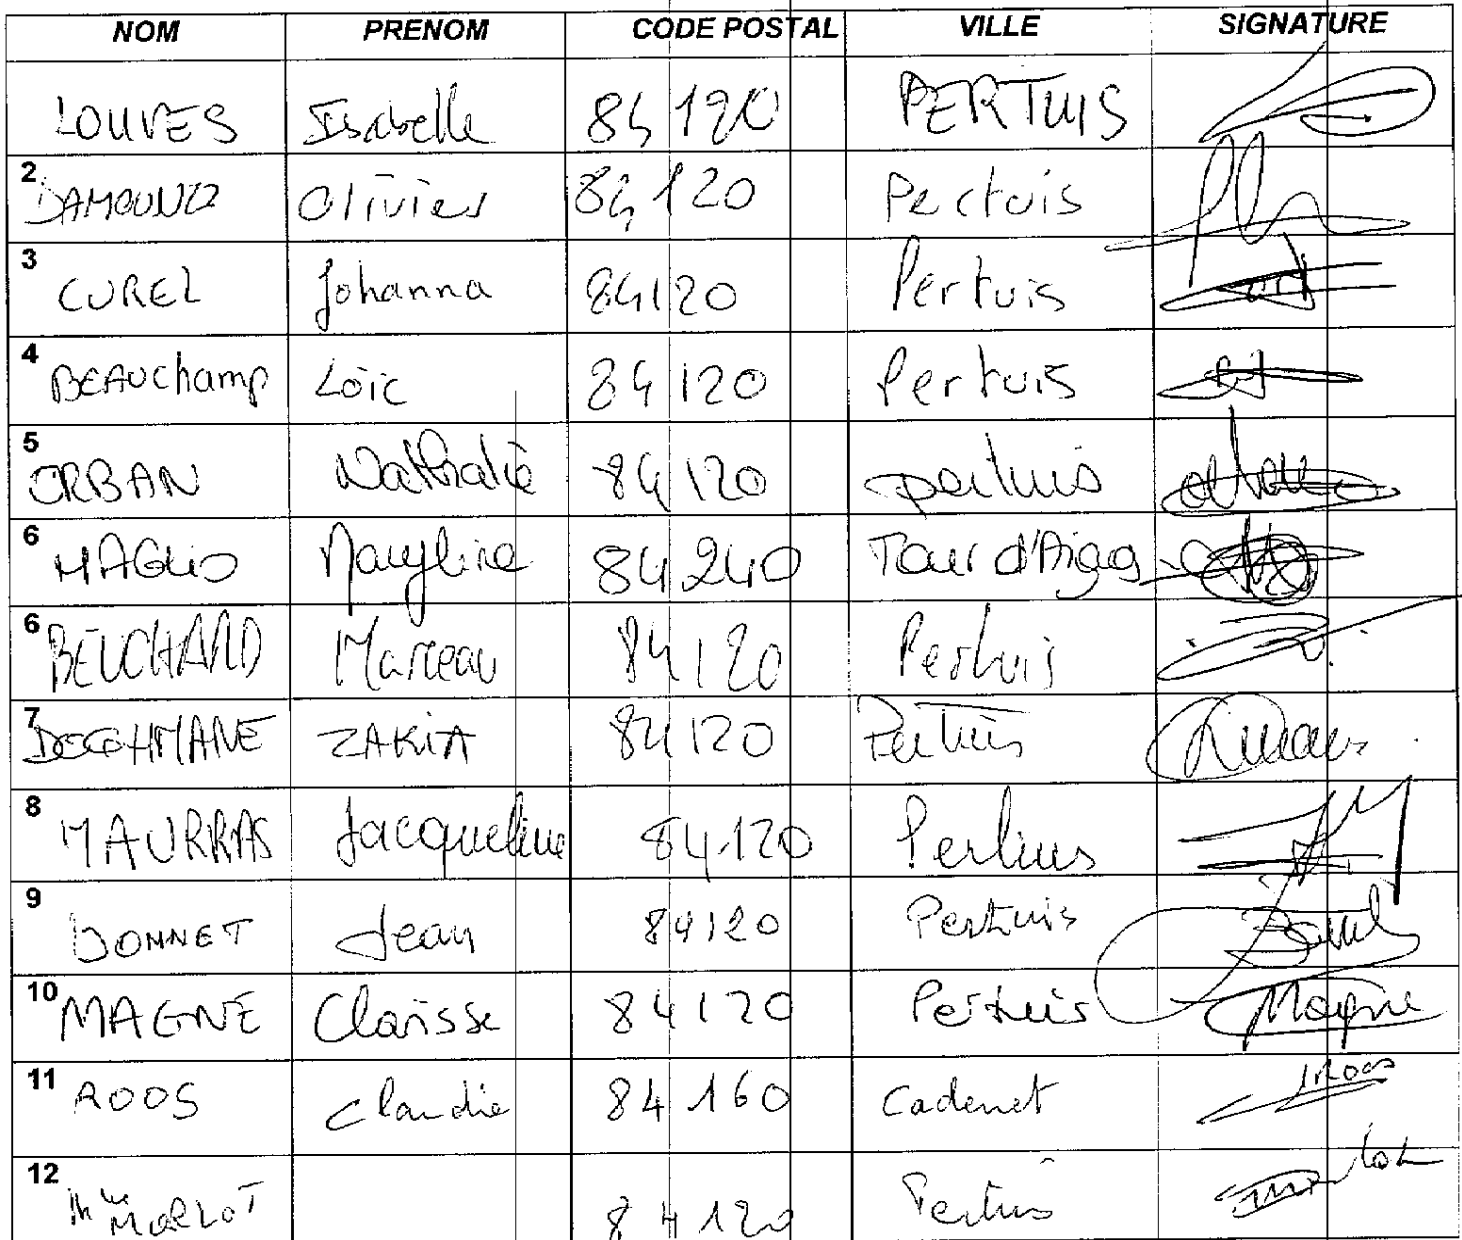 NOM PRENOM CODE POSTAL VILLE SIGNATURE
LOUVES Isabelle 84120 PERTUIS
2 Olivier 84120 Pertuis
3 CUREL Johanna 84120 Pertuis
4 BEAUchamp Loïc 84120 Pertuis
5 ORBAN Nathalie 84120 pertuis
6 MAGLIO 84240 Tour d'Aigas
6 BEUCHARD Marceau 84120 Pertuis
7 ZAKIA 84120 Pertuis
8 MAURRAS Jacqueline 84120 Pertuis
9 Jean 84120 Pertuis
10 MAGNE Clarisse 84120 Pertuis Magne
11 ROOS Claudie 84160 Cadenet Roos
12 84120 Pertuis